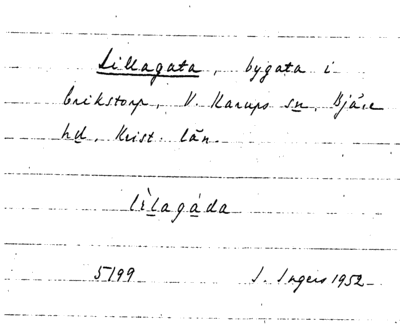 Lillagata, bygata i
Erikstorp, V. Karups sn, Bjäre
hd, Krist. län.
lìlagáda
5199 I. Ingers 1952